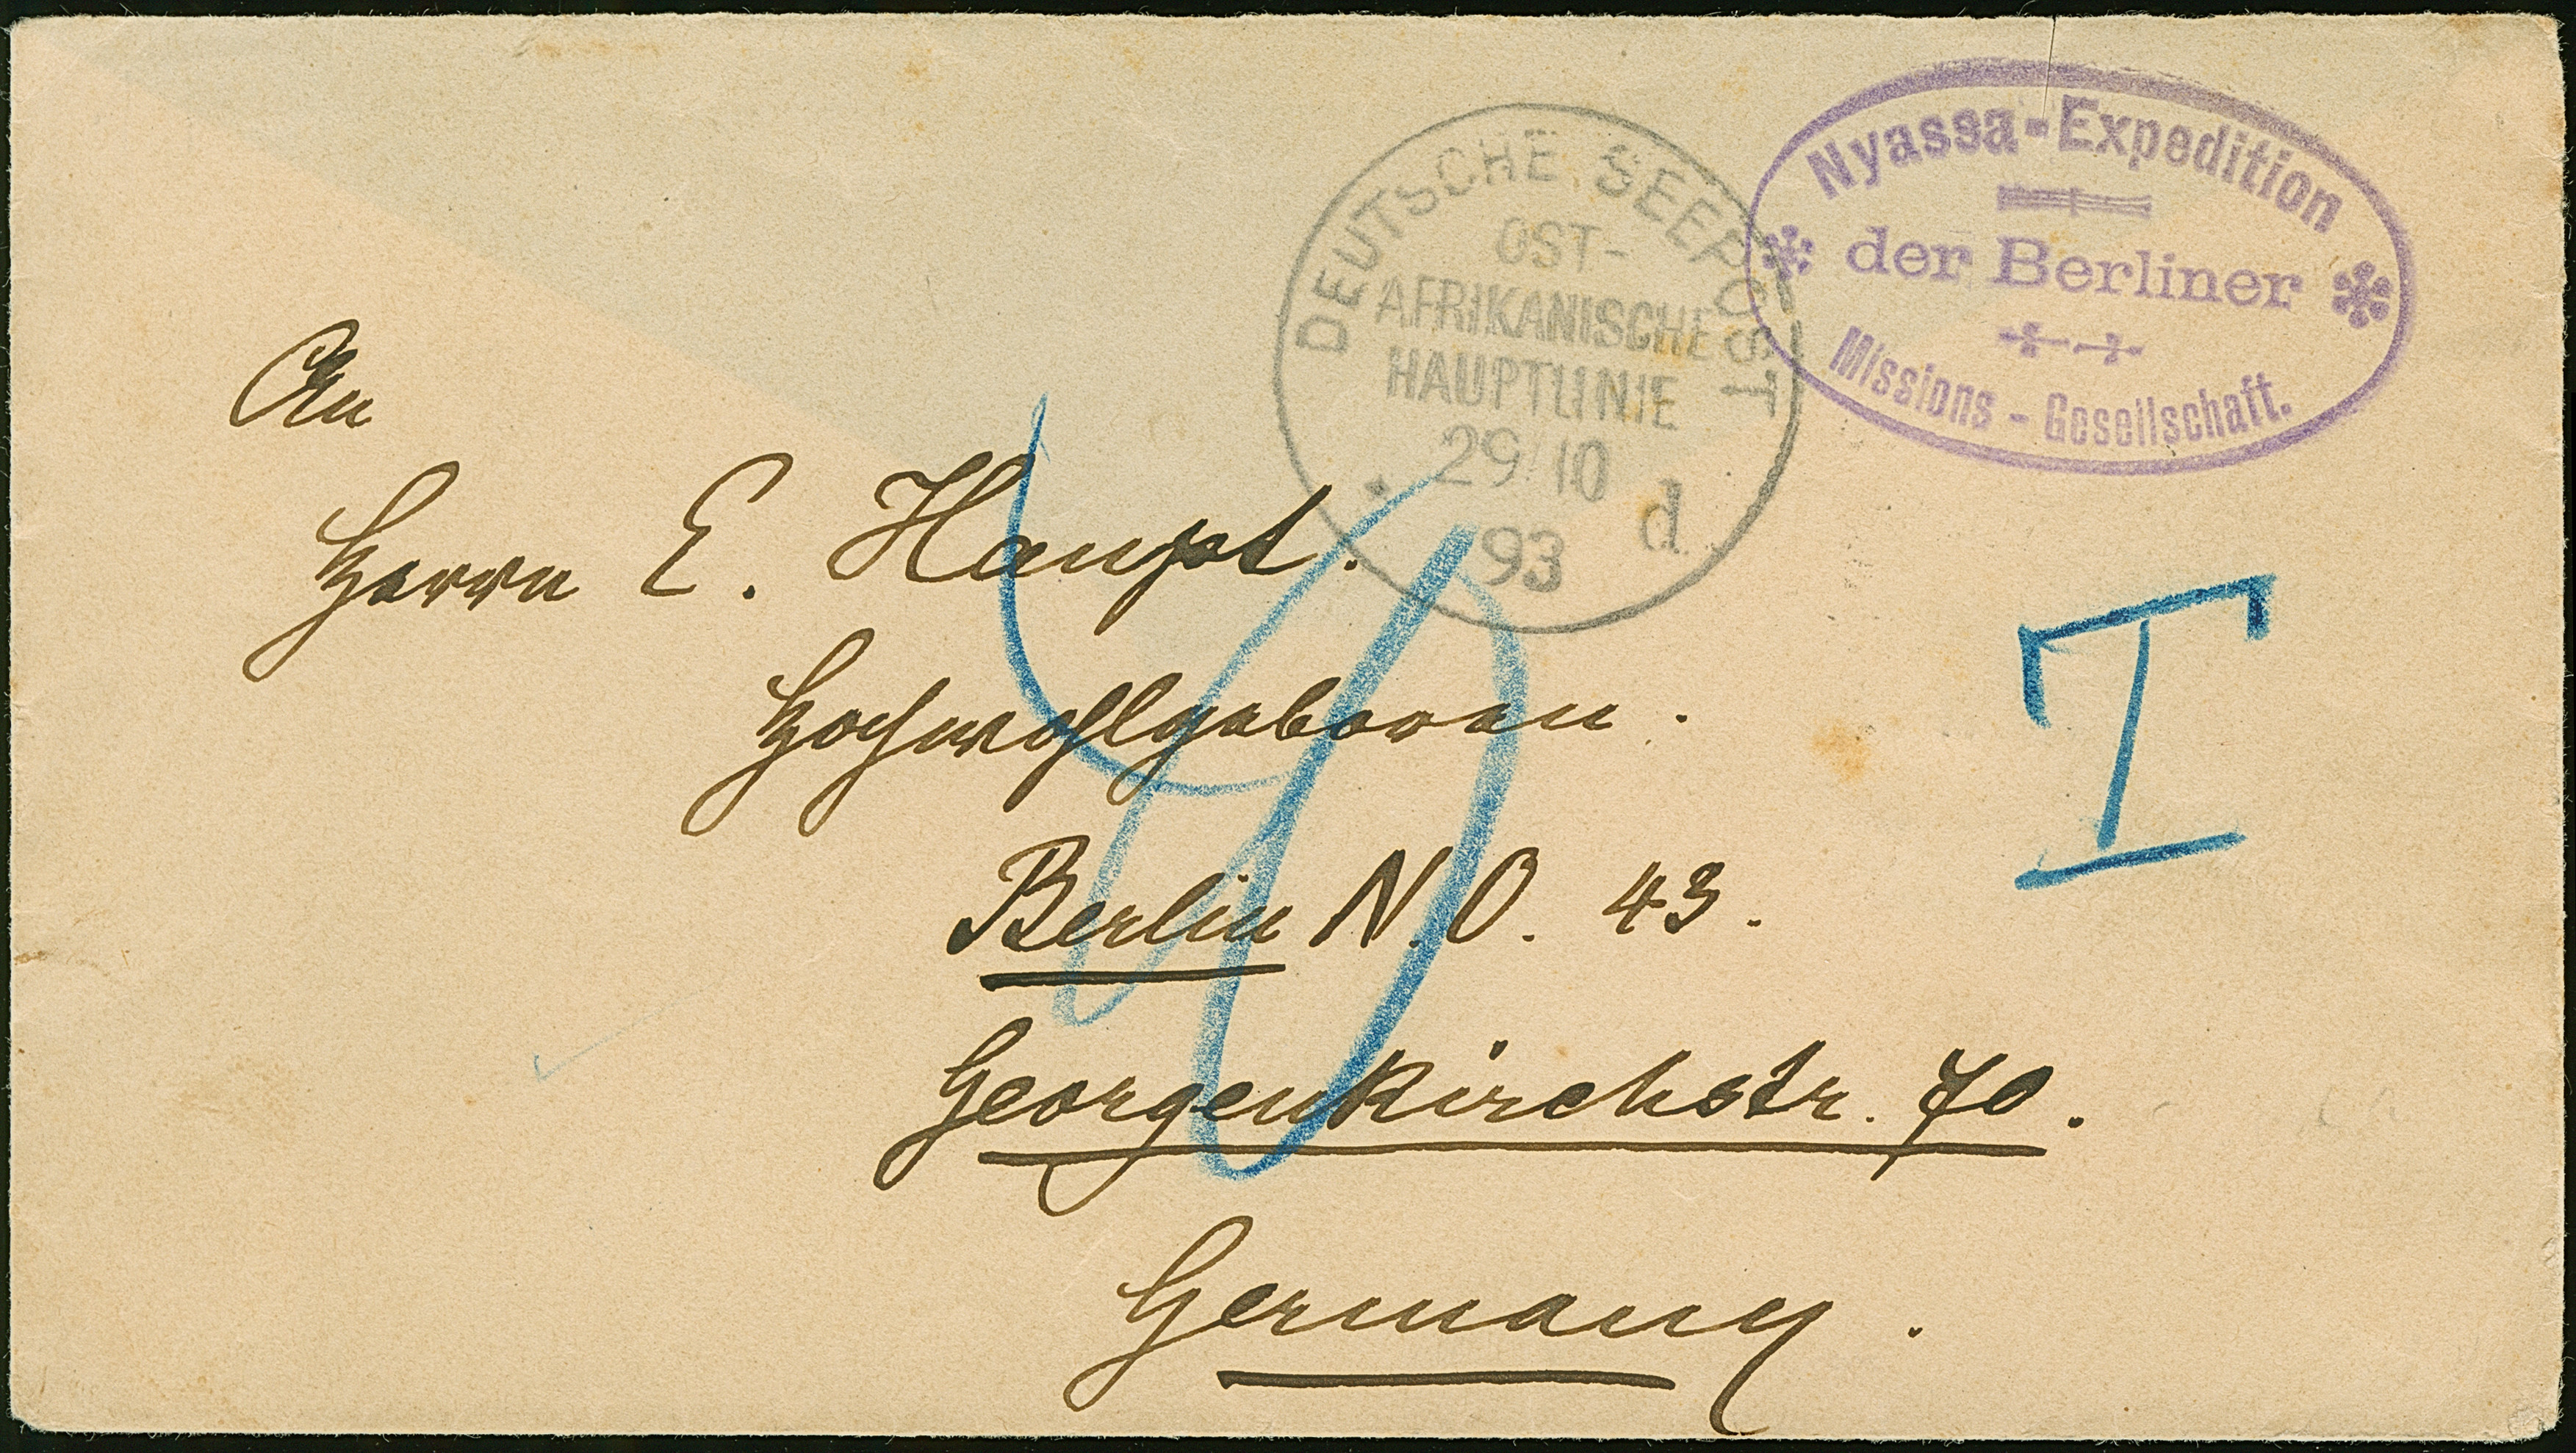 Nyassa-Expedition
der Berliner
Missions-Gesellschaft.
DEUTSCHE SEEPOST
OST-
AFRIKANISCHE
HAUPTLINIE
29/10
93
d
An
Herrn E. Haupt.
Hochwohlgeboren.
Berlin N.O. 43.
Georgenkirchstr. 70.
Germany.
T
40